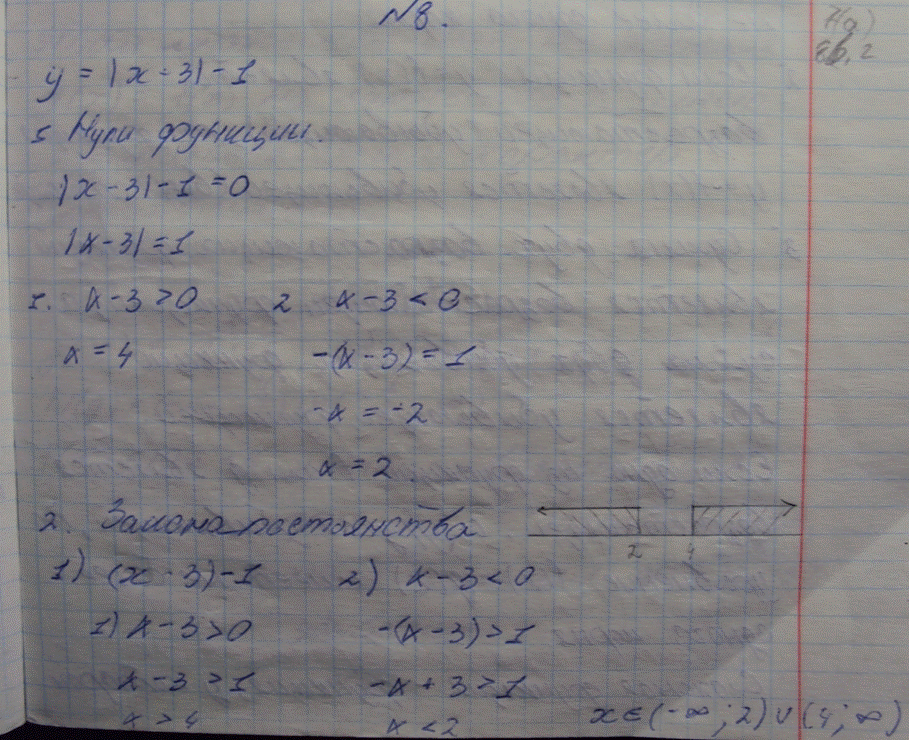 №8.
y = |x - 3| - 1
Нули функции.
|x - 3| - 1 = 0
|x - 3| = 1
1. x - 3 > 0 2 x - 3 < 0
x = 4 -(x - 3) = 1
-x = -2
x = 2
2.
2 4
1) (x - 3) - 1 2) x - 3 < 0
1) x - 3 > 0 -(x - 3) > 1
x - 3 > 1 -x + 3 > 1
x > 4 x < 2 x ∈ (-∞; 2) ∪ (4; ∞)